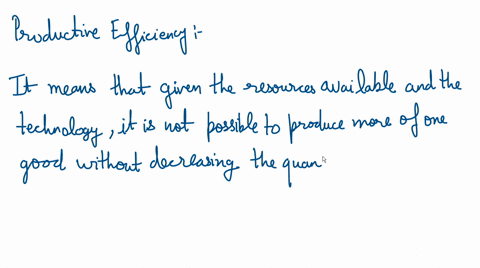 Productive Efficiency :-
It means that given the resources available and the
technology, it is not possible to produce more of one
good without decreasing the quan